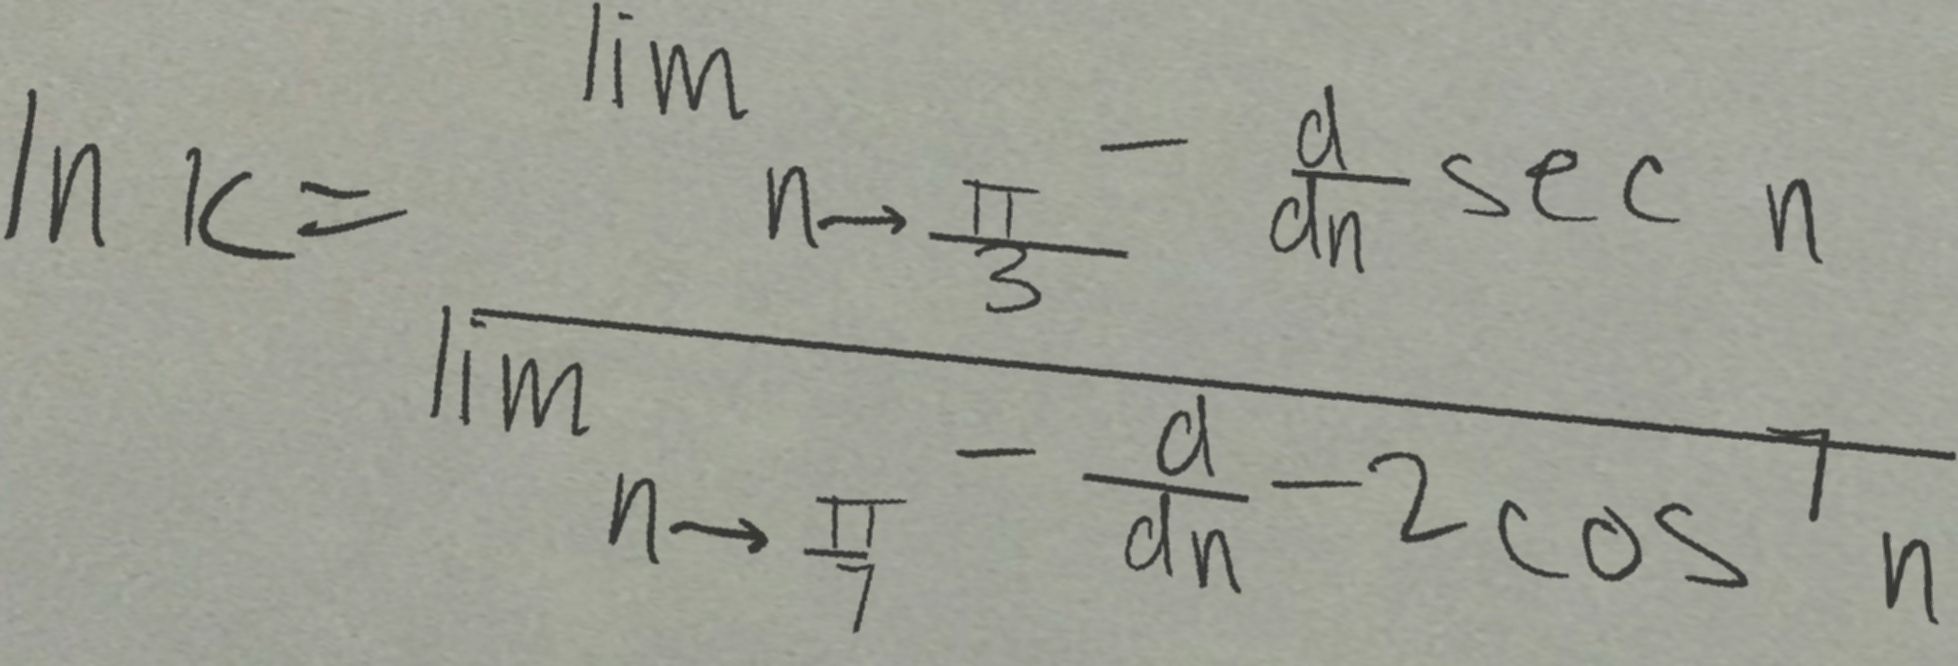 ln k = \frac{\lim_{n \to \frac{\pi}{3}} - \frac{d}{dn} \sec n}{\lim_{n \to \frac{\pi}{7}} - \frac{d}{dn} - 2 \cos^7 n}